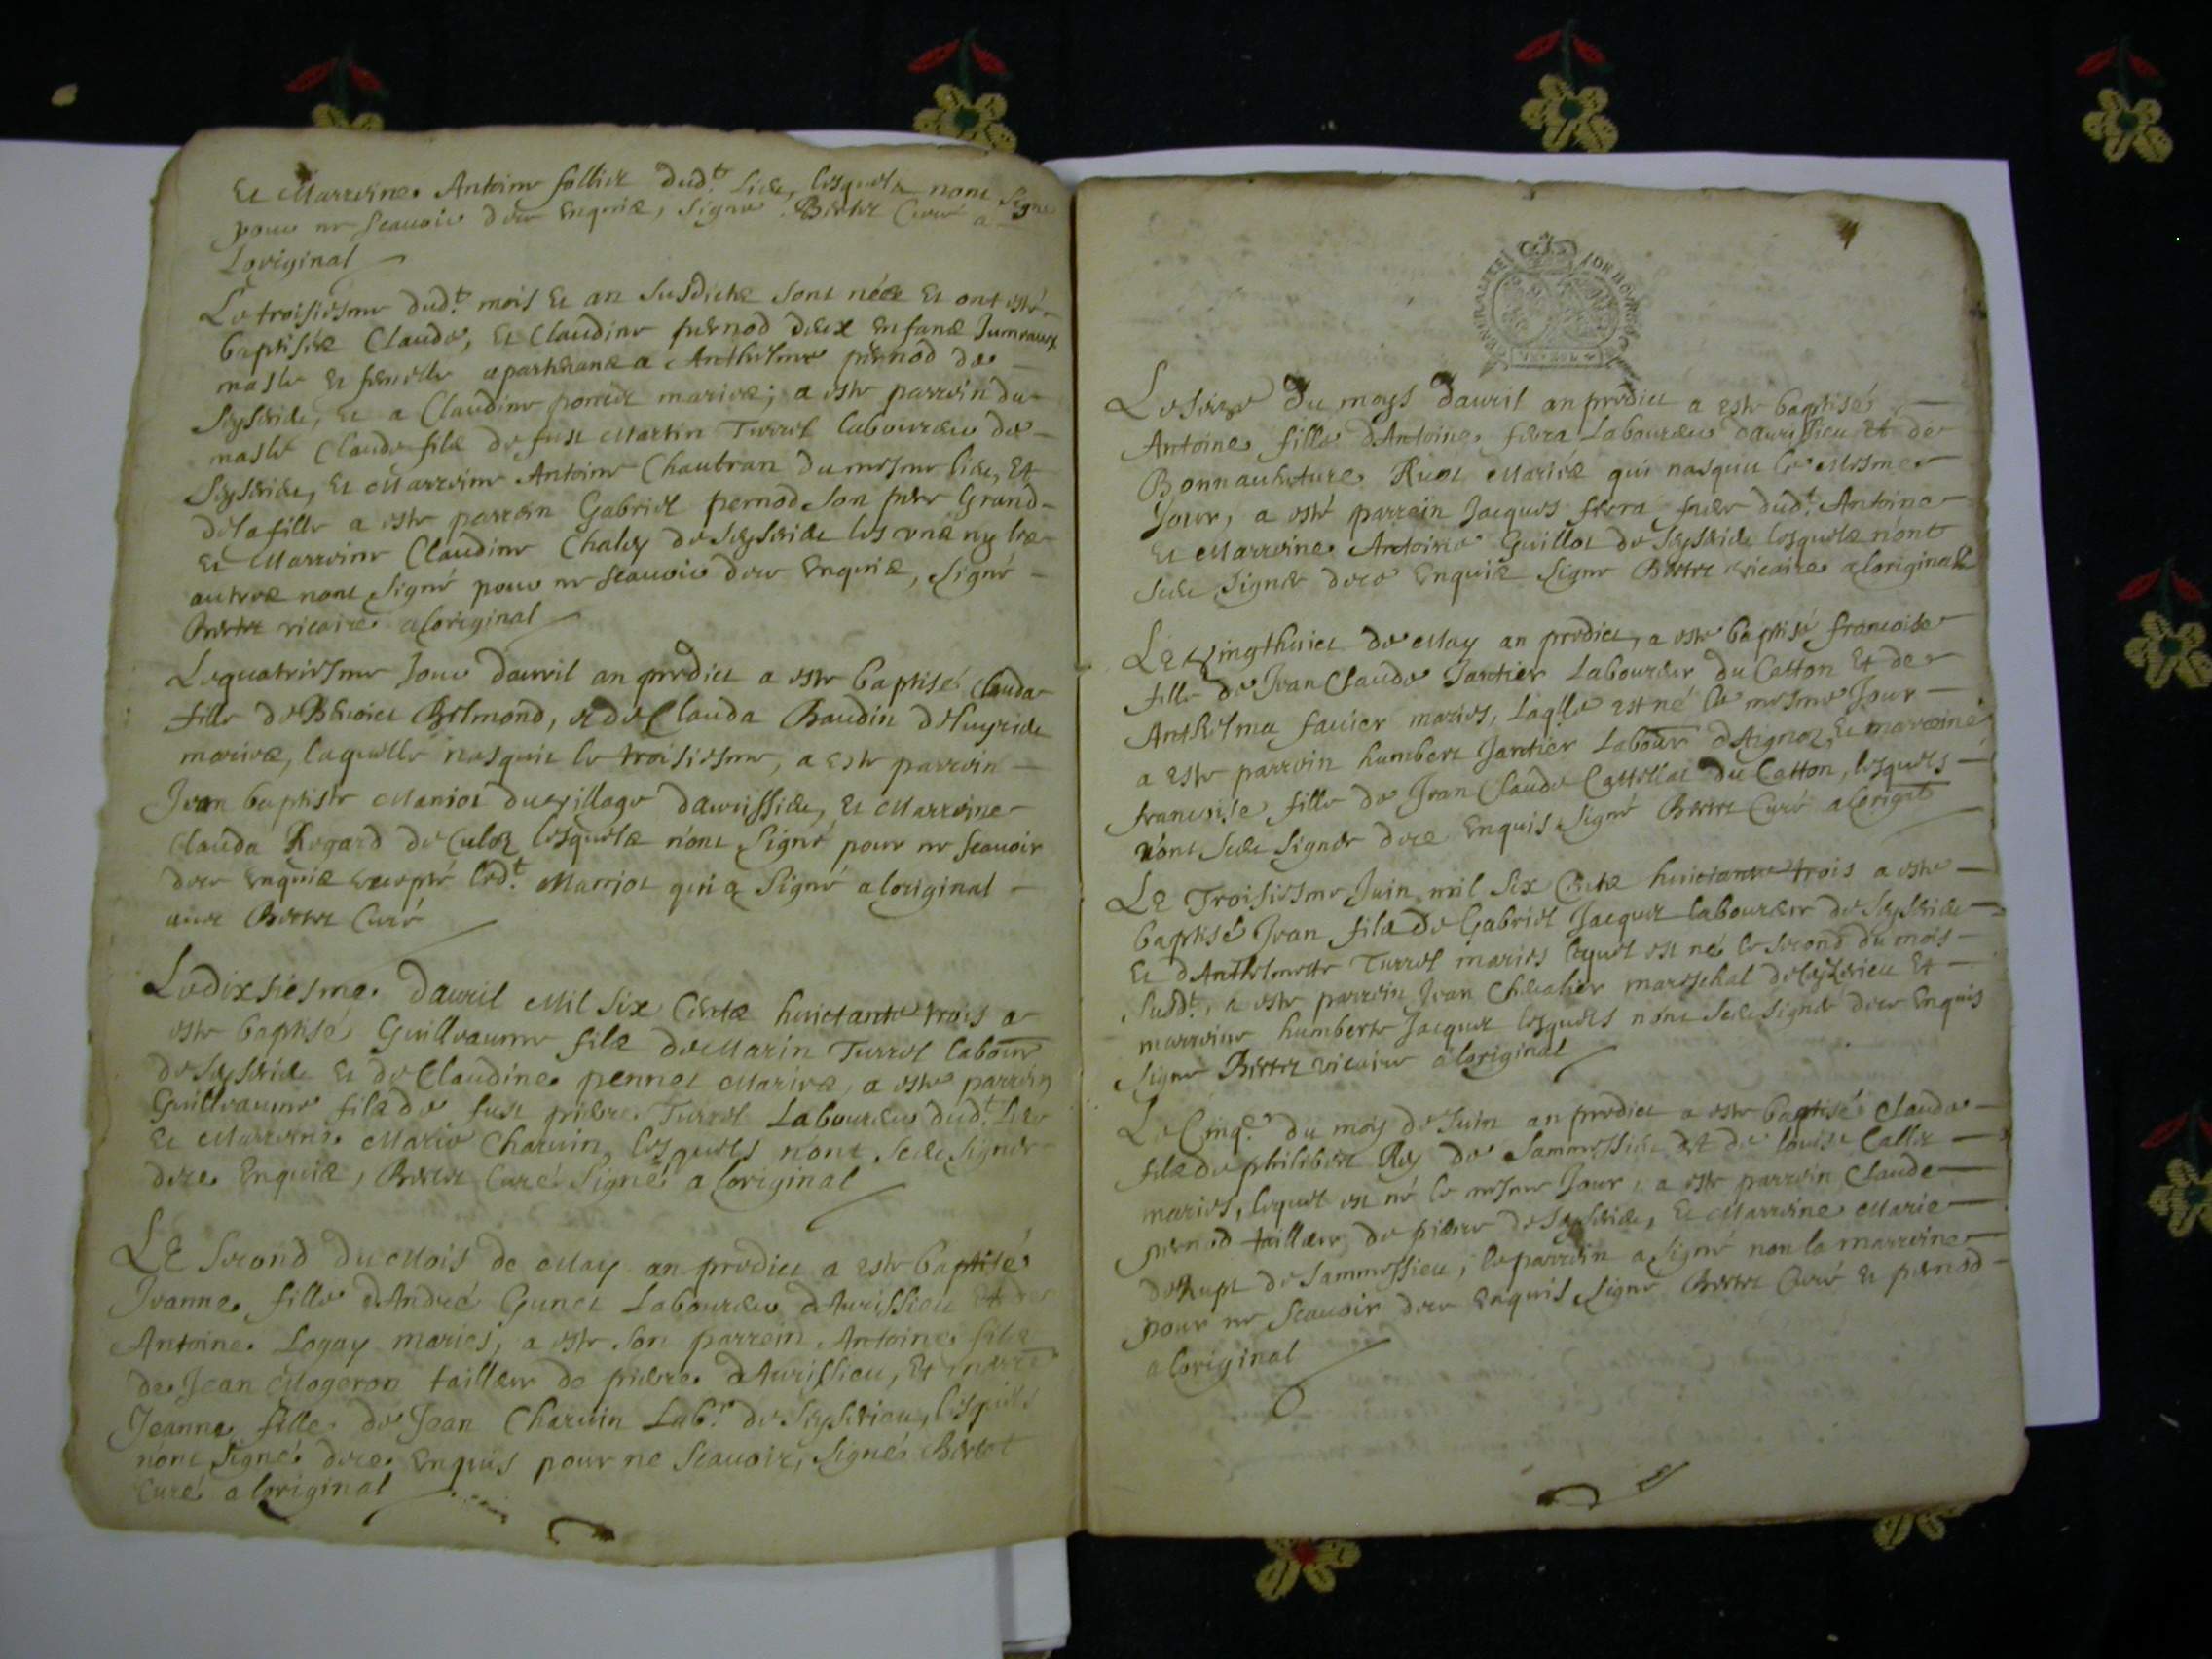 Et Marreine Antoine follier dud.t Lieu, lesquels nont Signé
pour ne Scauoir dece Enquis, Signé Bertet Curé a
Loriginal
Le troisiesme dud.t mois Et an Susdicts Sont nées Et ont esté
baptisés Claude, Et Claudine pernod deux Enfans Jumeaux
masle Et femelle apartenans a Anthelme pernod de
Seyserieu, Et a Claudine mariés; a esté parrein du
masle Claude fils de fust Martin Turrel laboureur de
Seyserieu, Et Marreine Antoine Chautran du mesme lieu, Et
dela fille a esté parrein Gabriel pernod Son pere Grand
Et Marreine Claudine Chaley de Seyserieu les uns ny les
autres nont Signé pour ne Scauoir dece Enquis, Signé
Bertet vicaire a loriginal
Le quatriesme Jour dauril an predict a esté baptisé Clauda
fille de Benoict Belmond, et de Clauda Baudin
mariés, laquelle nasquit le troisiesme, a esté parrein
Jean baptiste Marriot du village daurissieu, Et Marreine
Clauda Regard de Culoz lesquels nont Signé pour ne Scauoir
dece Enquis Excepté led.t Marriot qui a Signé a loriginal
auec Bertet Curé
Le dixsiesme dauril Mil Six Cents huictante trois a
esté baptisé Guilleaume fils de Marin Turrel labour
de Seyserieu Et de Claudine pennet Mariés, a esté parrein
Guilleaume fils de fust pierre Turrel Laboureur dud.t Lieu
Et Marreine Marie Charuin, lesquels nont Sceu Signer
dece Enquis, Bertet Curé Signé a loriginal
LE Second du Mois de May an predict a esté baptisé
Jeanne fille dAndré Gunet Laboureur dAurissieu Et de
Antoine Logay mariés, a esté Son parrein Antoine fils
de Jean Mogeron tailleur de pierre dAurissieu, Et marre
Jeanne fille de Jean Charuin Lab.r de Seyserieu, lesquels
nont Signé dece Enquis pour ne Scauoir, Signé Bertet
Curé a loriginal
Le Seize du moys dauril an predict a esté baptisé
Antoine fille dAntoine ferra Laboureur daurissieu Et de
Bonnauenture Ruet Mariés qui nasquit le Mesme
Jour, a esté parrein Jacques ferra frere dud.t Antoine
Et Marreine Antoine Guillot de Seyserieu lesquels nont
Sceu Signer dece Enquis Signé Bertet vicaire a loriginal
Le Vingthuict de May an predict, a esté baptisé francoise
fille de Jean Claude Jantier Laboureur du Catton Et de
Anthelma fauier mariés, Laqlle est né le mesme Jour
a esté parrein humbert Jantier Labour dAignoz, Et marreine
francoise fille de Jean Claude Castellat du Catton, lesquels
nont Sceu Signer dece Enquis Signé Bertet Curé a lorigal
Le Troisiesme Juin mil Six Cents huictante trois a esté
baptisé Jean fils de Gabriel Jacquet laboureur de Seyserieu
Et dAnthelmette Turrel mariés lequel est né le Second du mois
Susd.t, a esté parrein Jean Cheualier mareschal de Ceyzerieu Et
marreine humberte Jacquet lesquels nont Sceu Signer dece Enquis
Signé Bertet vicaire a loriginal
Le Cinq.e du moy de Juin an predict a esté baptisé Claude
fils de philibert Rey de Sammessieu Et de louise Callet
mariés, lequel est né le mesme Jour, a esté parrein Claude
pernod tailleur de pierre de Seyserieu, Et Marreine Marie
de Sammessieu, le parrein a Signé non la marreine
pour ne Scauoir dece Enquis Signé Bertet Curé Et pernod
a loriginal